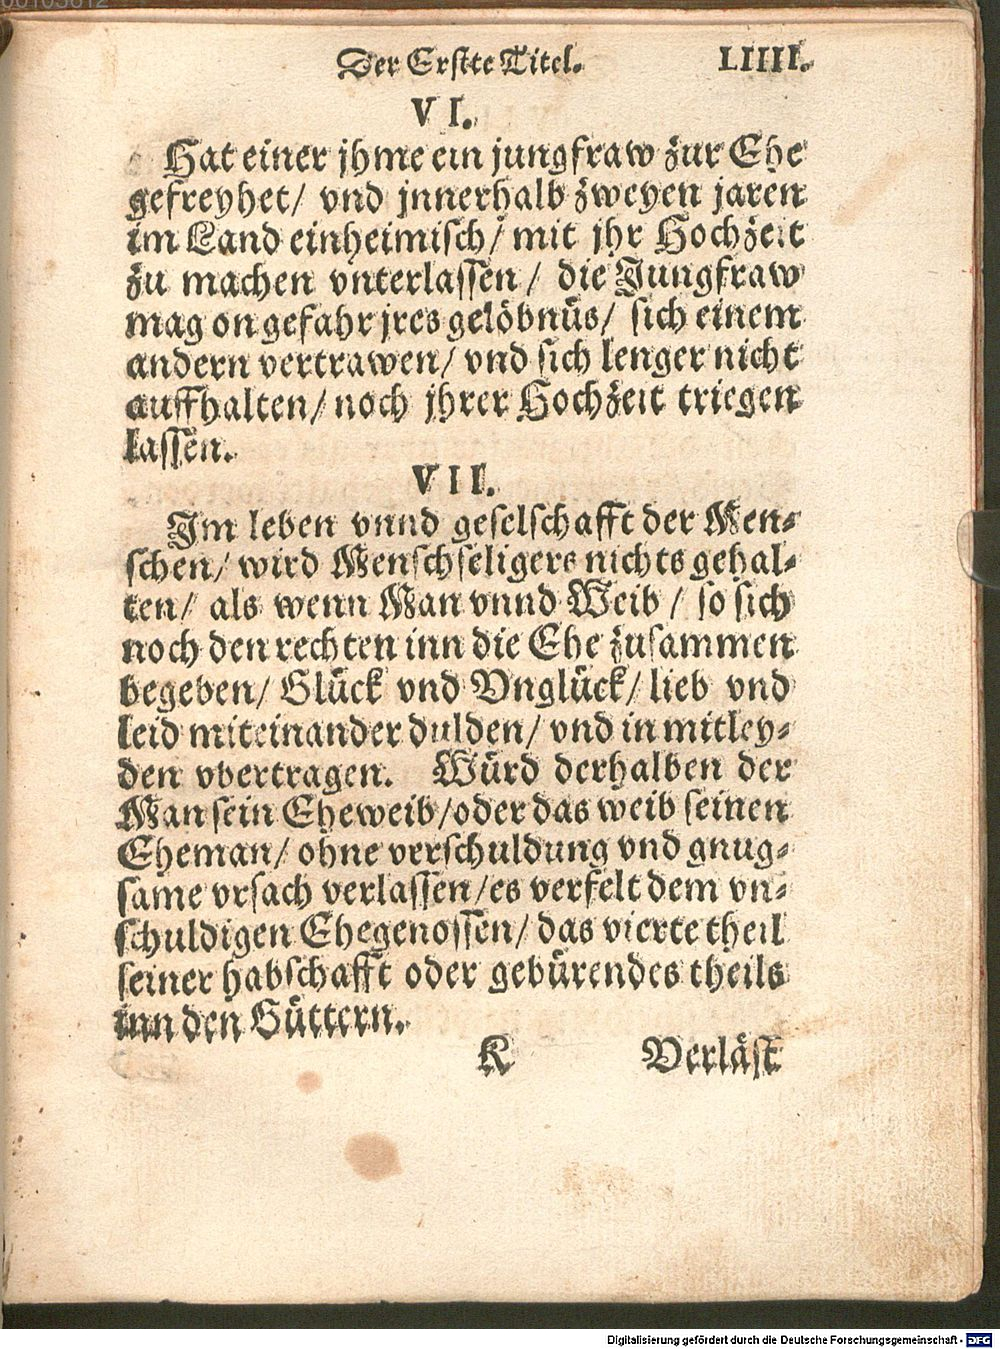 00103612
Der Erstte Titel. LIIII.
VI.
Hat einer jhme ein jungfraw zur Ehe
gefreyhet/ vnd jnnerhalb zweyen jaren
im Land einheimisch/ mit jhr Hochzeit
zu machen vnterlassen/ die Jungfraw
mag on gefahr jres gelöbnüs/ sich einem
andern vertrawen/ vnd sich lenger nicht
auffhalten/ noch jhrer Hochzeit triegen
lassen.
VII.
Im leben vnnd geselschafft der Men⸗
schen/ wird Menschseligers nichts gehal⸗
ten/ als wenn Man vnnd Weib/ so sich
noch den rechten inn die Ehe zusammen
begeben/ Glück vnd Vnglück/ lieb vnd
leid miteinander dulden/ vnd in mitley⸗
den vbertragen. Würd derhalben der
Man sein Eheweib/oder das weib seinen
Eheman/ ohne verschuldung vnd gnug⸗
same vrsach verlassen/es verfelt dem vn⸗
schuldigen Ehegenossen/ das vierte theil
seiner habschafft oder gebürendes theils
inn den Güttern.
K Verläst
Digitalisierung gefördert durch die Deutsche Forschungsgemeinschaft - DFG